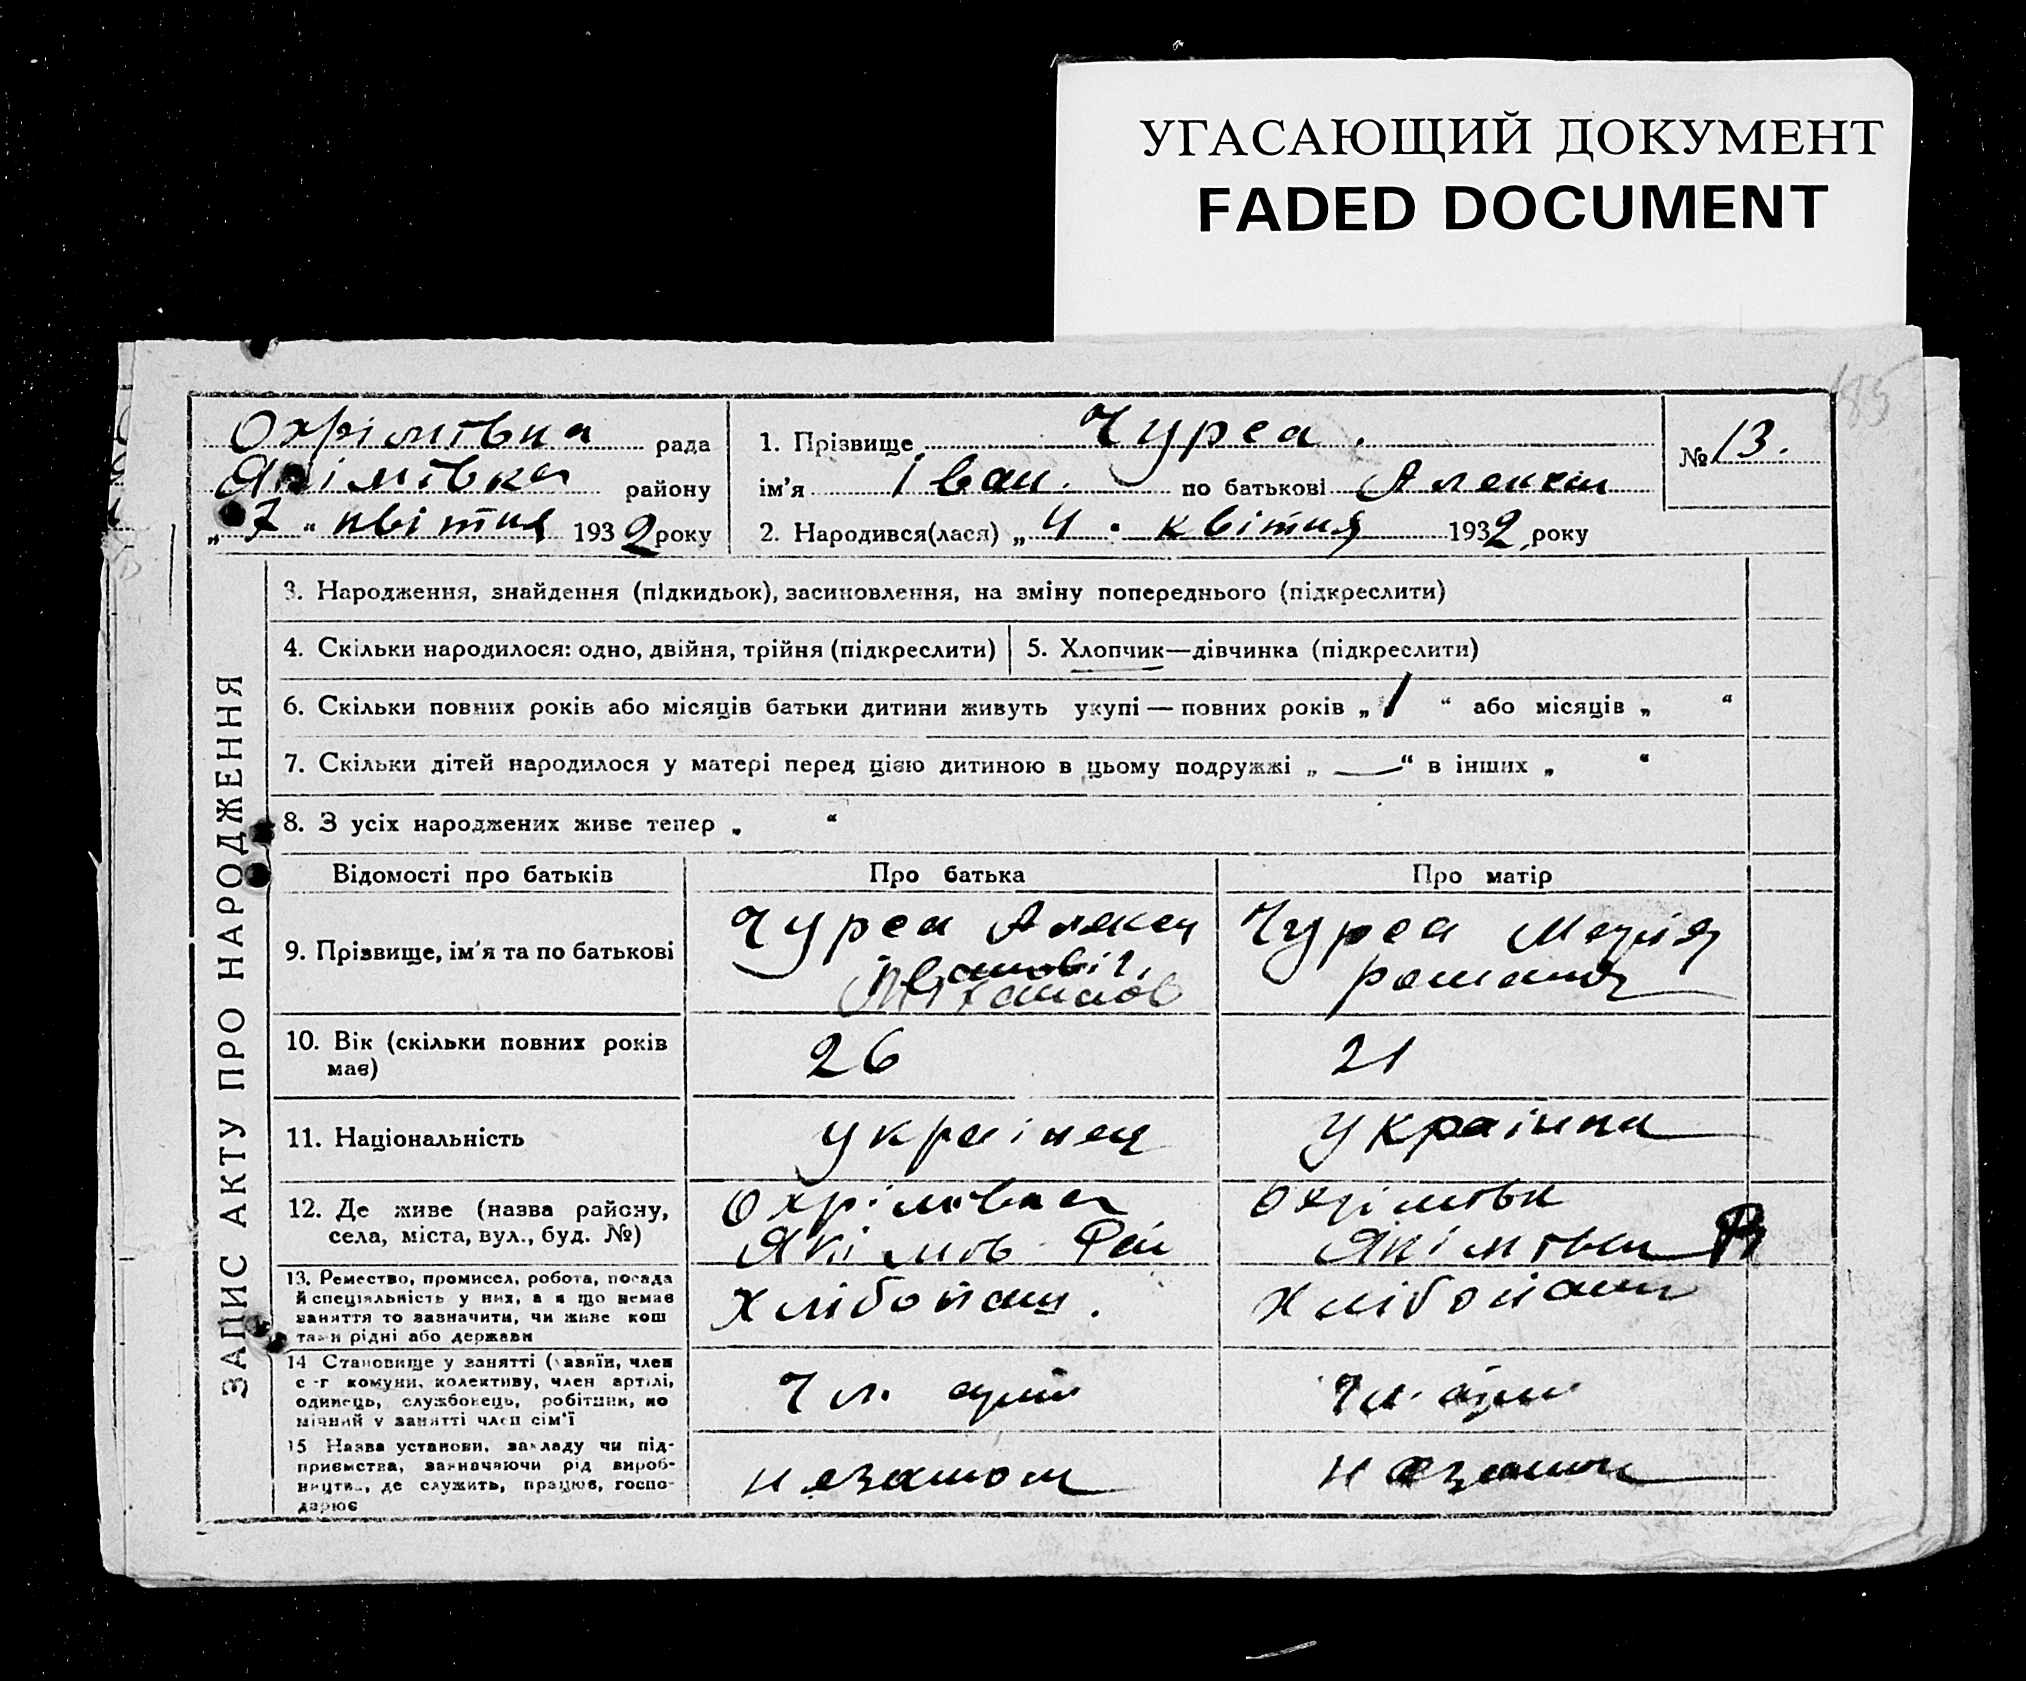 УГАСАЮЩИЙ ДОКУМЕНТ
FADED DOCUMENT
185
Охрімівка рада
Якімівка району
„7“ квітня 1932 року
1. Прізвище Чуреа.
ім'я Іван. по батькові Алексій
2. Народився(лася) „4. квітня 1932 року
№ 13.
ЗАПИС АКТУ ПРО НАРОДЖЕННЯ
3. Народження, знайдення (підкидьок), засиновлення, на зміну попереднього (підкреслити)
4. Скільки народилося: одно, двійня, трійня (підкреслити)
5. Хлопчик—дівчинка (підкреслити)
6. Скільки повних років або місяців батьки дитини живуть укупі — повних років „1“ або місяців „ “
7. Скільки дітей народилося у матері перед цією дитиною в цьому подружжі „—“ в інших „ “
8. З усіх народжених живе тепер „ “
Відомості про батьків
Про батька
Про матір
9. Прізвище, ім'я та по батькові
Чуреа Алексій
Іванович
Чуреа Марія
10. Вік (скільки повних років
має)
26
21
11. Національність
українец
українка
12. Де живе (назва району,
села, міста, вул., буд. №)
Охрімівка
Якімов Рай
Охрімовк
Якімовка Р
13. Ремество, промисел, робота, посада
й спеціяльність у них, а я що немає
заняття то зазначити, чи живе кош
тами рідні або держави
хлібопаш.
хлібопаш
14 Становище у занятті (хазяїн, член
с -г комуни, колективу, член артілі,
одинець, службовець, робітник, по
мічний у занятті член сім'ї
Чл. арт
Чл. арт
15 Назва установи, закладу чи під-
приємства, зазначаючи рід вироб-
ництв., де служить, працює, госпо-
дарює
незамож
незамож